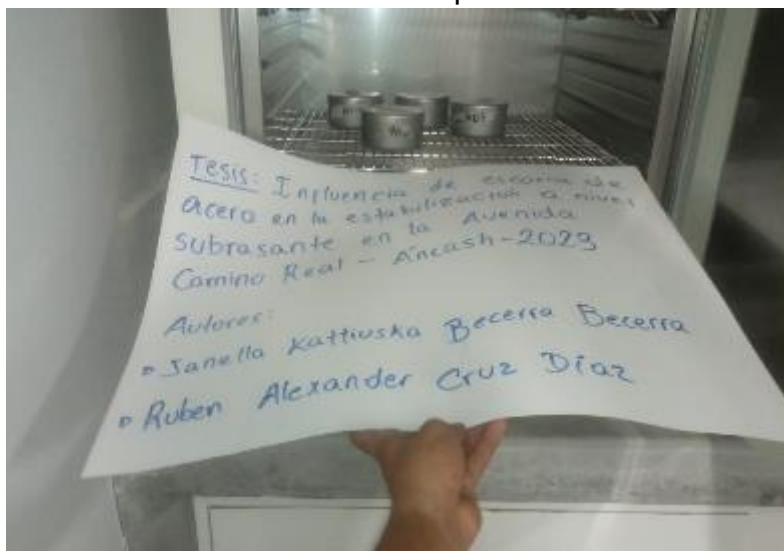 Tesis: Influencia de escoria de
acero en la estabilizacion a nivel
subrasante en la Avenida
Camino Real - Áncash - 2023
Autores:
Janella Kattiuska Becerra Becerra
Ruben Alexander Cruz Díaz